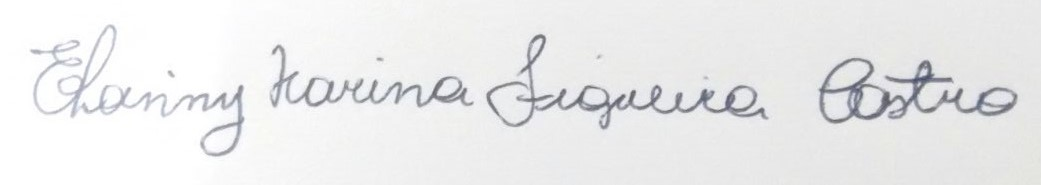 Ehanny Karina Figueira Castro